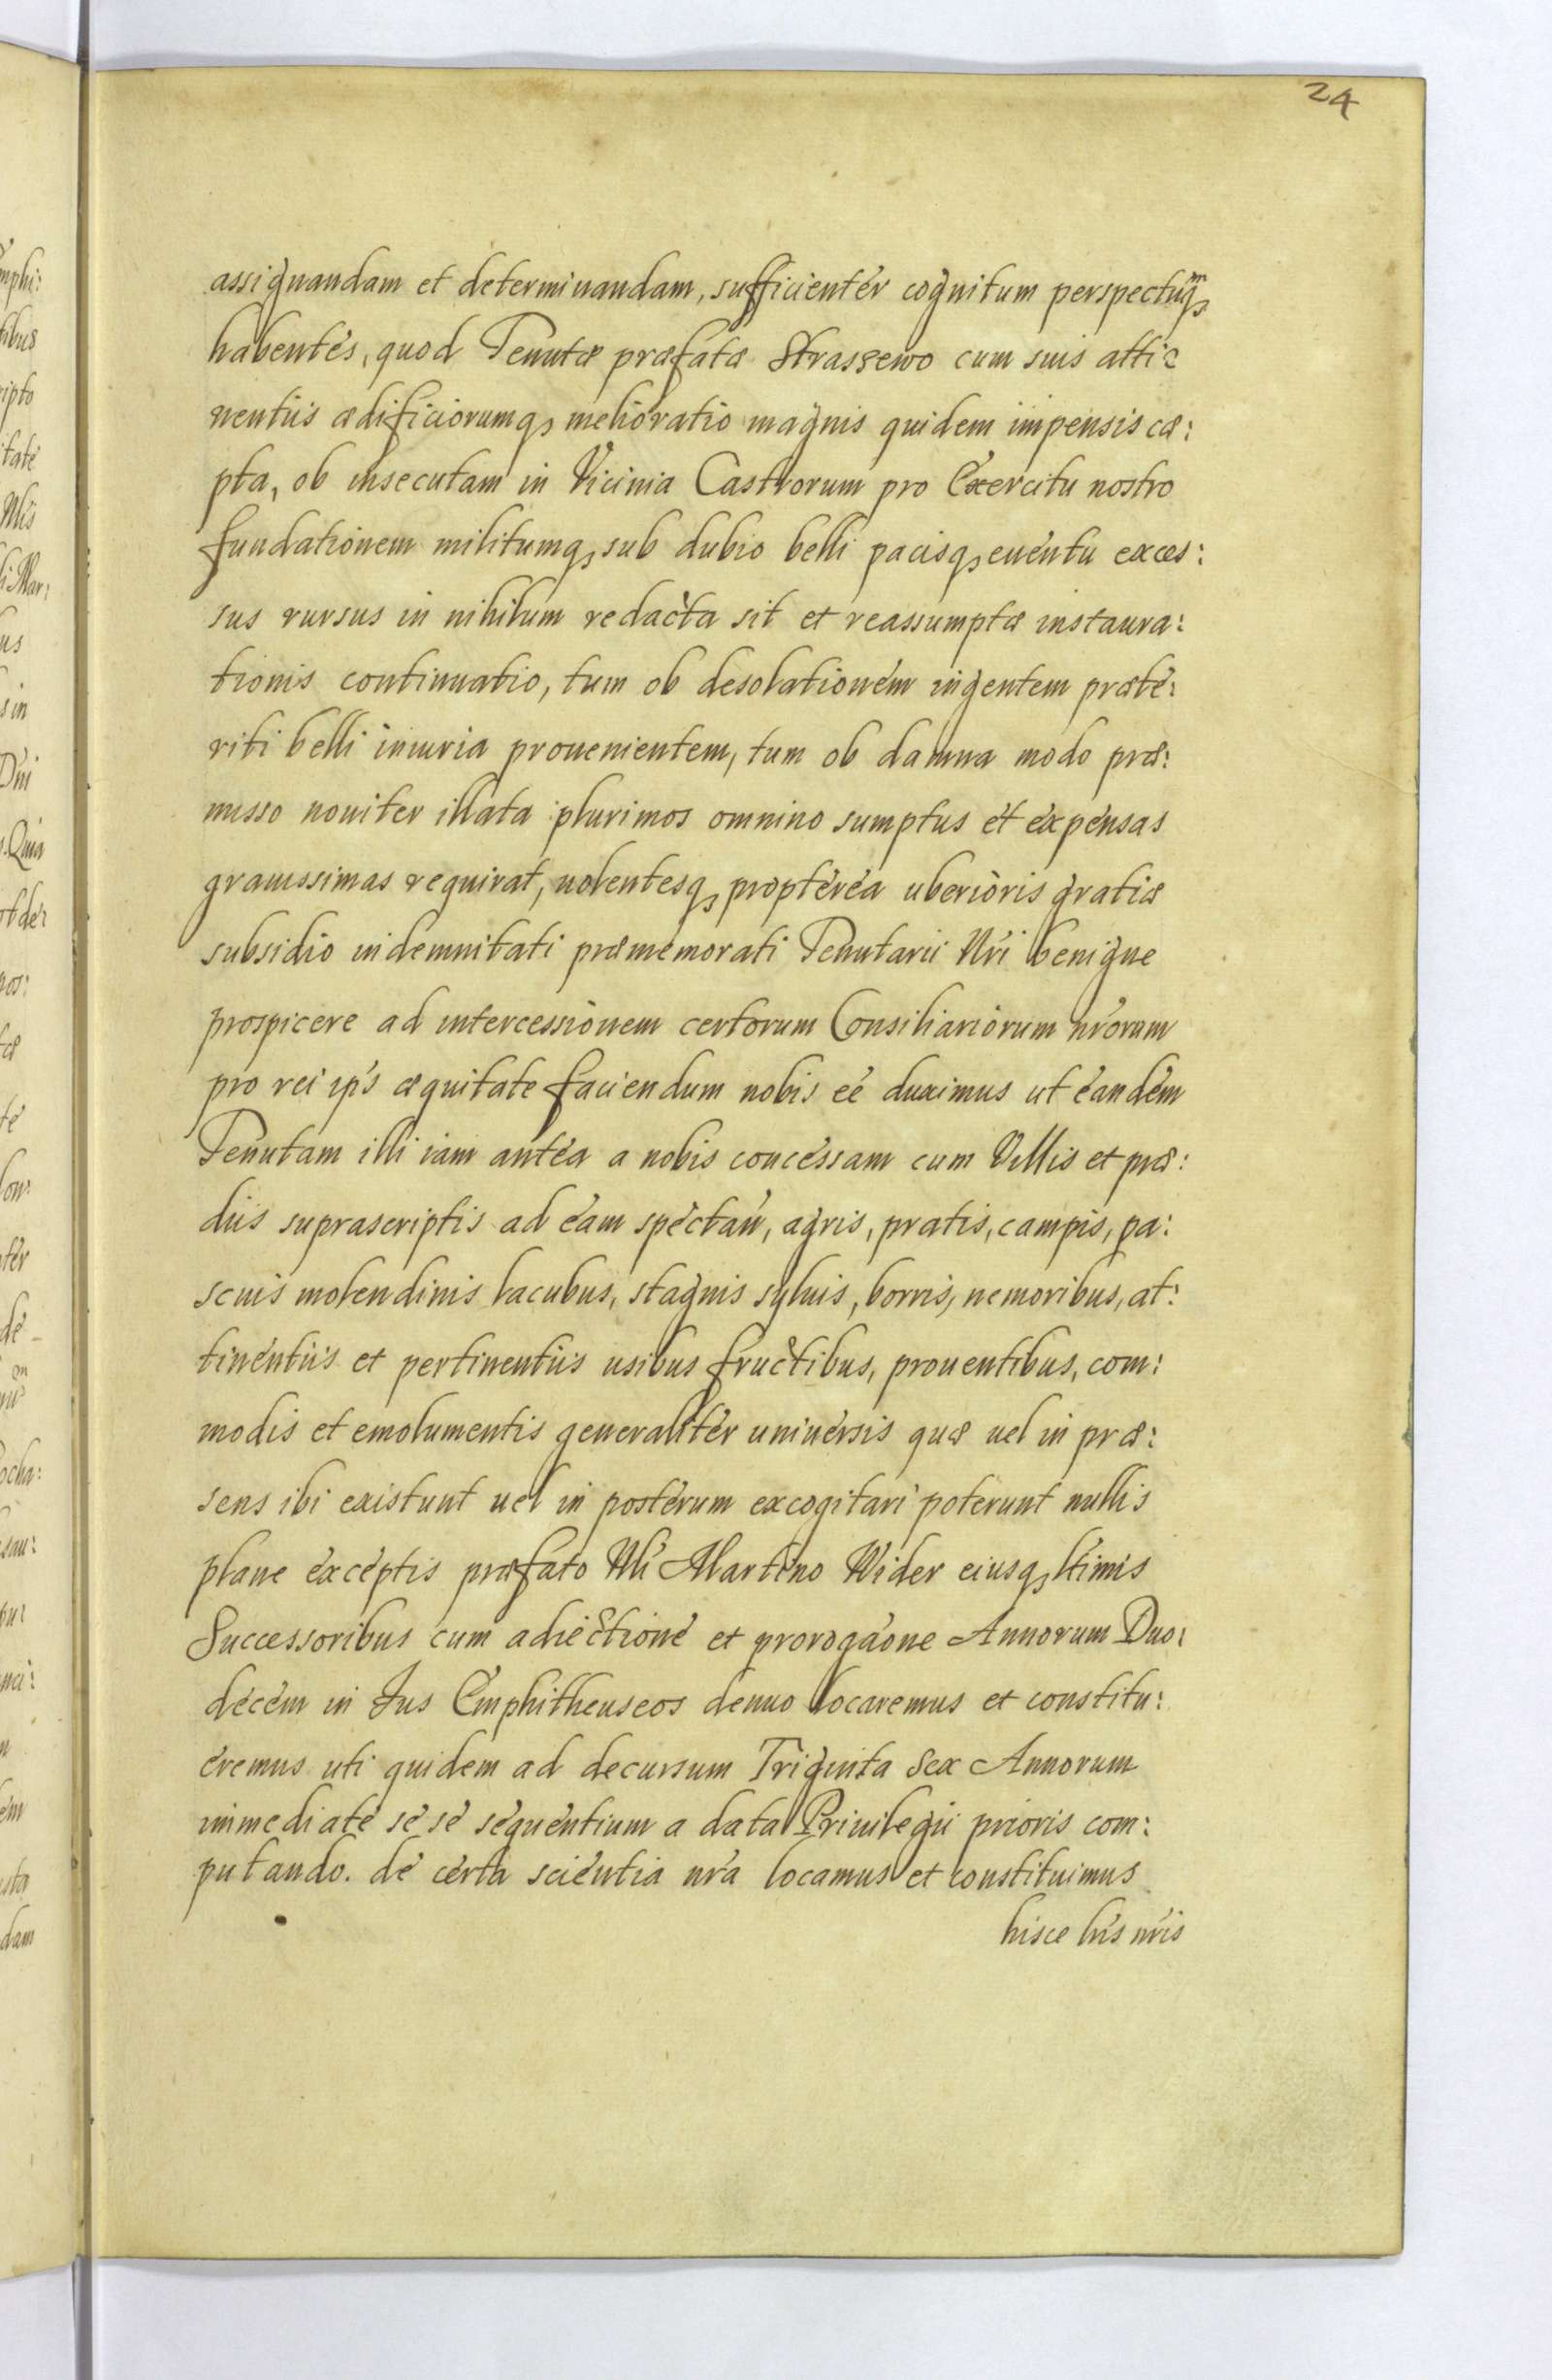 24
assignandam et determinandam, sufficientér cognitum perspectuq̃ꝫ
habentes, quod Tenutæ præfatæ Strassewo cum suis atti:
nentiis ædificiorumqꝫ melioratio magnis quidem impensis cæ:
pta, ob insecutam in Vicinia Castrorum pro Exercitu nostro
fundationem militumqꝫ sub dubio belli pacisqꝫ euentu exces:
sus rursus in nihilum redacta sit et reassumptæ instaura:
tionis continuatio, tum ob desolationem ingentem præte:
riti belli iniuria prouenientem, tum ob damna modo præ:
misso nouiter illata plurimos omnino sumptus et expensas
grauissimas requirat, uolentesqꝫ proptérea uberioris gratiæ
subsidio indemnitati præmemorati Tenutarii Nri benigne
prospicere ad intercessionem certorum Consiliariorum nrorum
pro rei ips æquitate faciendum nobis eé duximus ut éandem
Tenutam illi iam antea a nobis concessam cum Villis et præ:
diis suprascriptis ad eam spectan, agris, pratis, campis, pa:
scuis molendinis lacubus, stagnis syluis, borris, nemoribus, at:
tinentiis et pertinentiis usibus fructibus, prouentibus, com:
modis et emolumentis generalitér uniuersis quæ uel in præ:
sens ibi existunt uel in posterum excogitari poterunt nullis
plane exceptis præfato Nli Martino Wider eiusqꝫ ltimis
Successoribus cum adiectione et prorogaone Annorum Duo:
decem in Jus Emphitheuseos denuo locaremus et constitu:
eremus uti quidem ad decursum Triginta Sex Annorum
immediate se se sequentium a data Priuilegii prioris com:
putando. de certa scientia nra locamus et constituimus
hisce lris nris